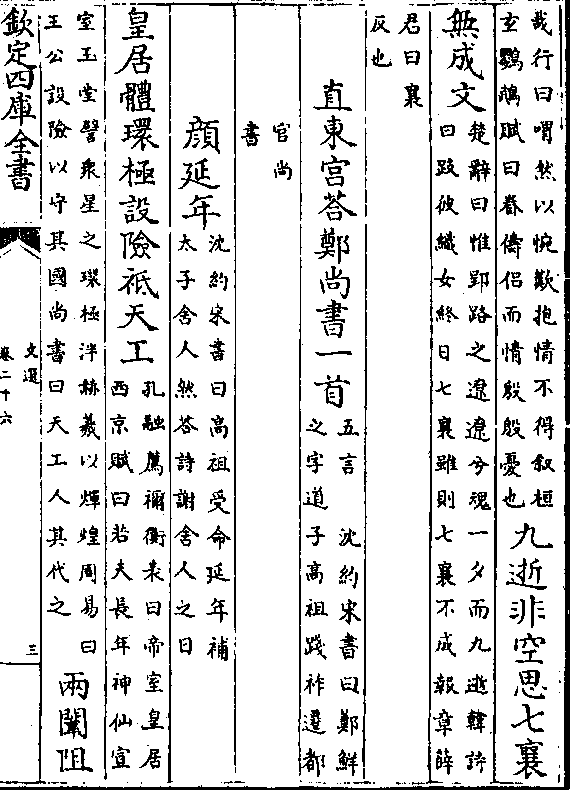 哉行曰喟然以惋歎抱情不得叙桓
玄鸚鵡賦曰眷儔侣而情殷殷憂也
九逝非空思七襄
無成文
楚辭曰惟郢路之遼遼兮魂一夕而九逝韓詩
曰跂彼織女終日七襄雖則七襄不成報章薛
君曰襄
反也
直東宫答鄭尚書一首
五言 沈約宋書曰鄭鮮
之字道子高祖踐祚遷都
官尚
書
顔延年
沈約宋書曰高祖受命延年補
太子舍人然答詩謝舍人之日
皇居體環極設險祗天工
孔融薦禰衡表曰帝室皇居
西京賦曰若夫長年神仙宣
室玉堂譬衆星之環極泮赫羲以煇煌周易曰
王公設險以守其國尚書曰天工人其代之
兩闈阻
欽定四庫全書
文選
卷二十六
三